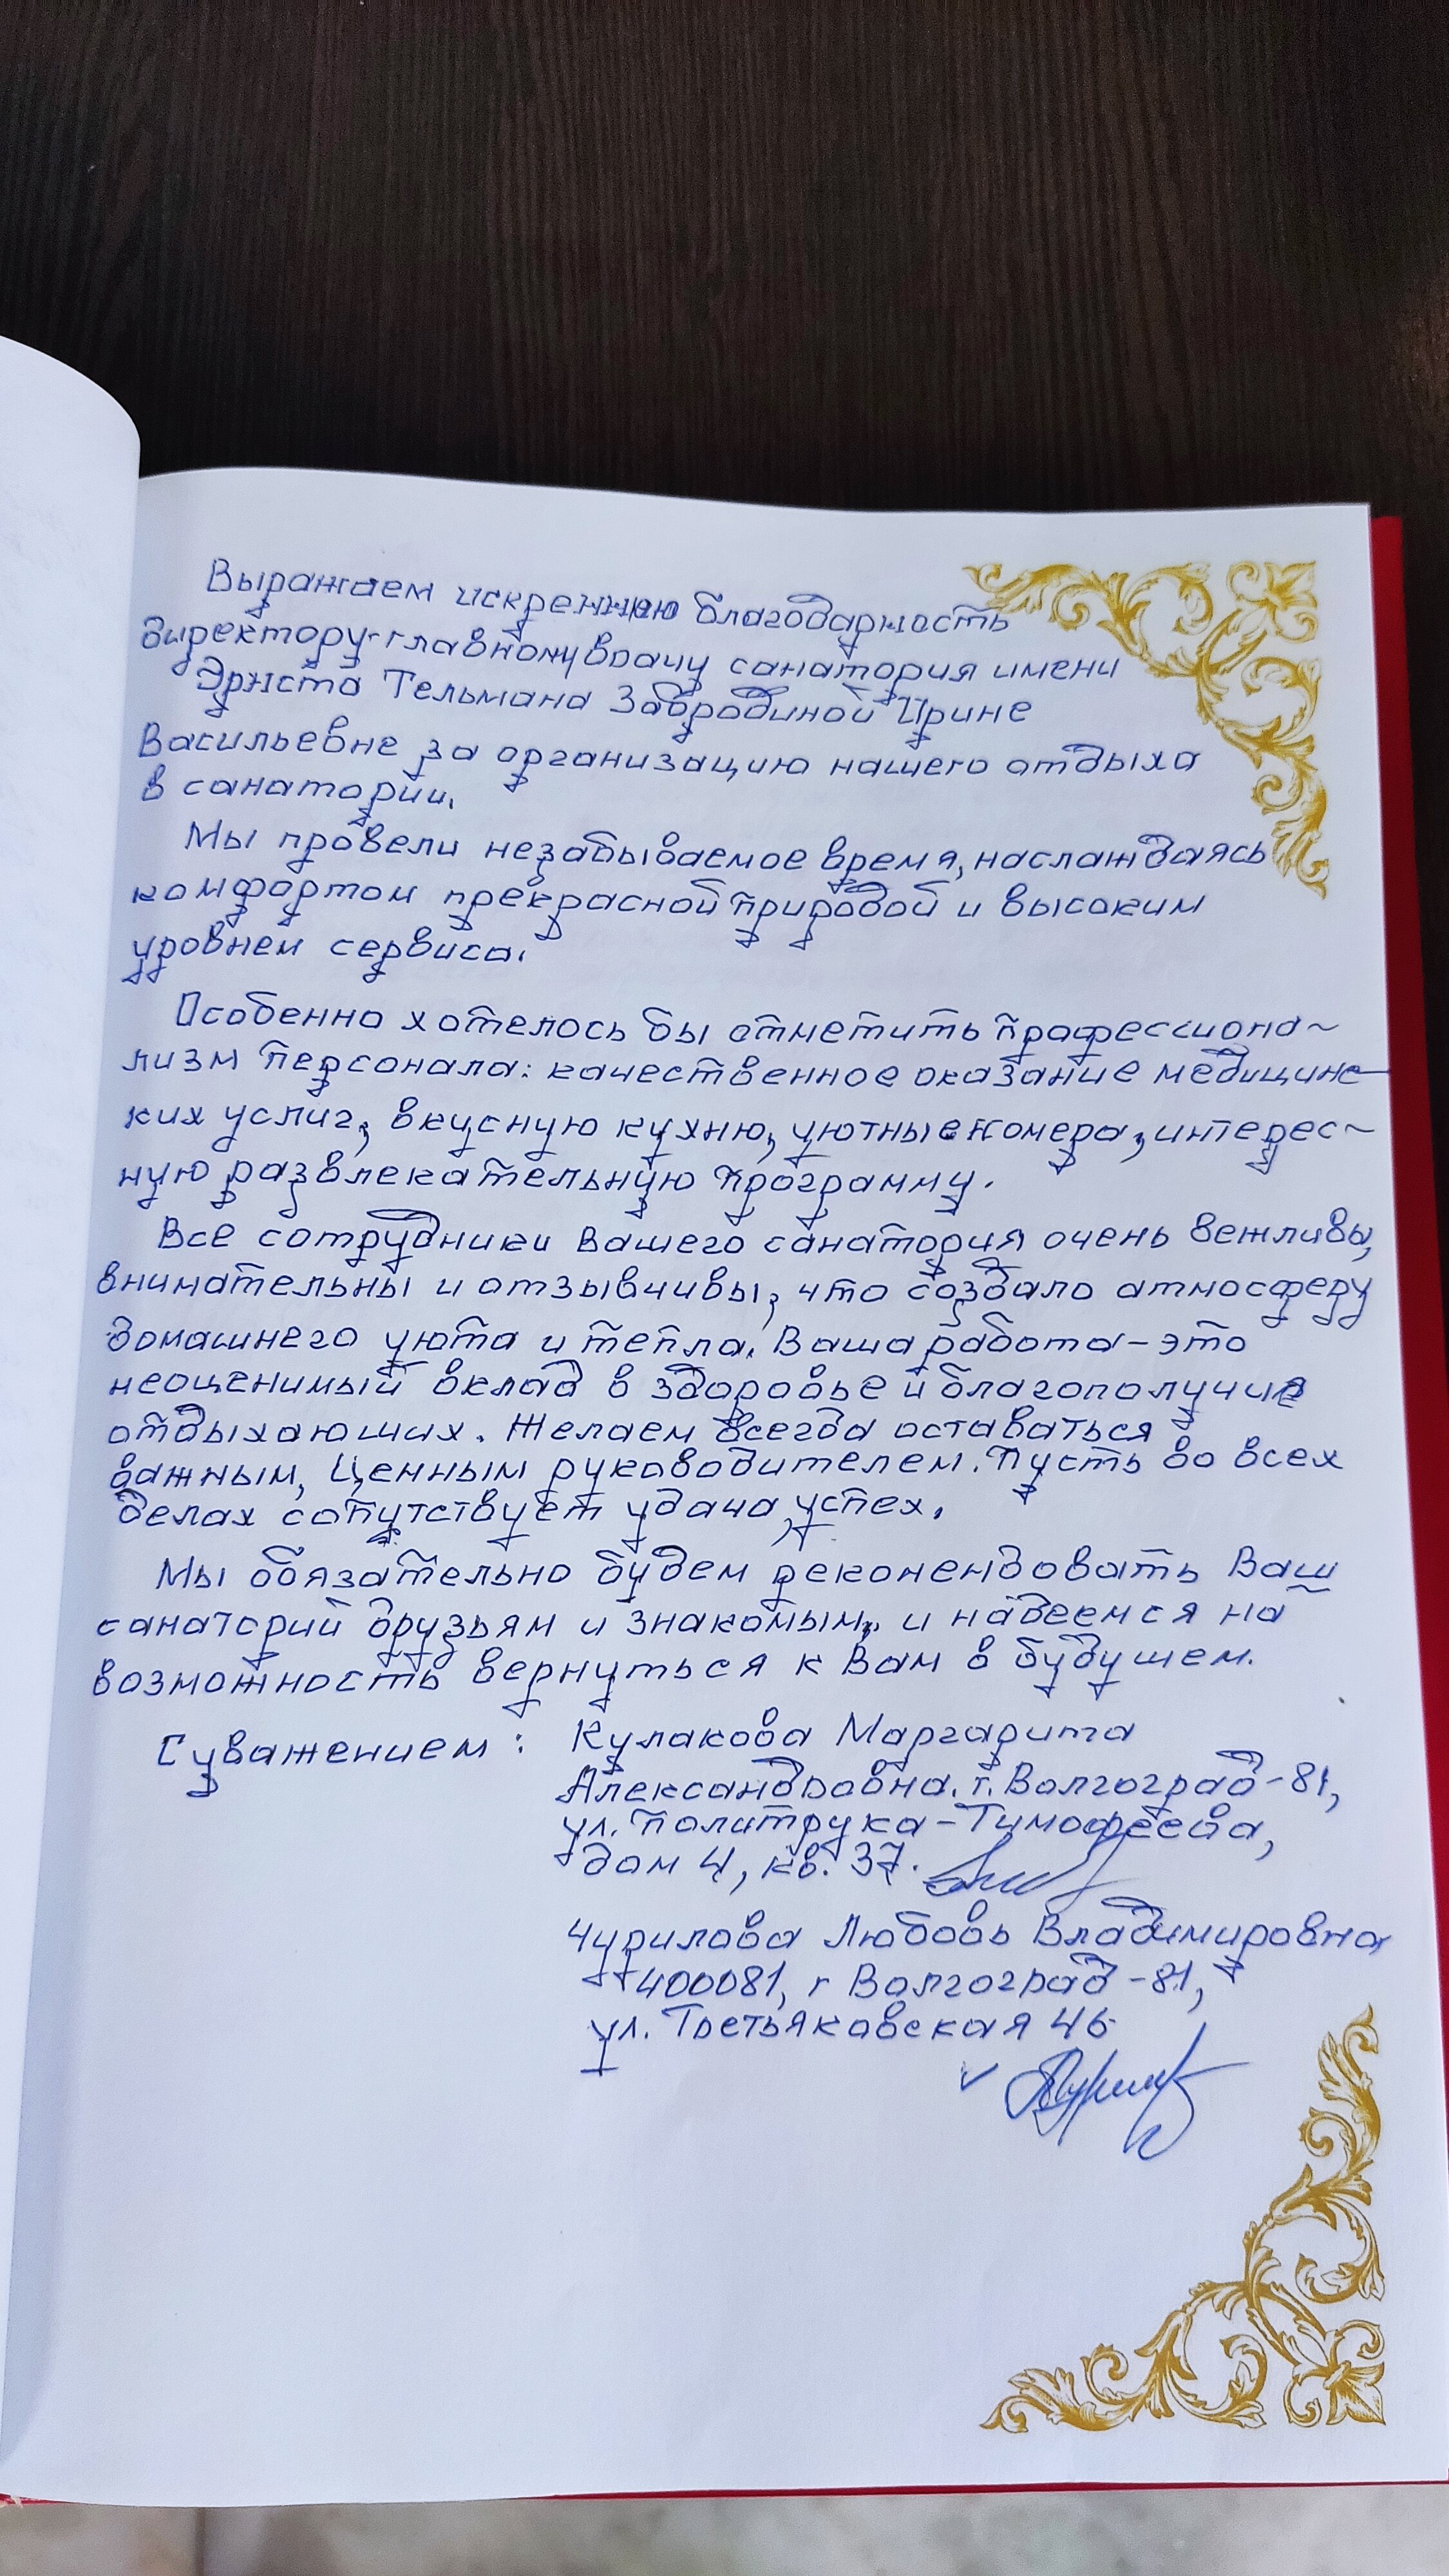 Выражаем искреннюю благодарность
директору-главному врачу санатория имени
Эрнста Тельмана Забродиной Ирине
Васильевне за организацию нашего отдыха
в санатории.
Мы провели незабываемое время, наслаждаясь
комфортом прекрасной природой и высоким
уровнем сервиса.
Особенно хотелось бы отметить профессиона~
лизм персонала: качественное оказание медицинс
ких услуг, вкусную кухню, уютные номера, интерес~
ную развлекательную программу.
Все сотрудники Вашего санатория очень вежливы,
внимательны и отзывчивы, что создало атмосферу
домашнего уюта и тепла. Ваша работа – это
неоценимый вклад в здоровье и благополучие
отдыхающих. Желаем всегда оставаться
важным, ценным руководителем. Пусть во всех
делах сопутствует удача, успех.
Мы обязательно будем рекомендовать Ваш
санаторий друзьям и знакомым, и надеемся на
возможность вернуться к Вам в будущем.
С уважением: Кулакова Маргарита
Александровна. г. Волгоград-81,
ул. Политрука-Тимофеева,
дом 4, кв. 37.
Чурилова Любовь Владимировна
400081, г Волгоград-81,
ул. Третьяковская 46